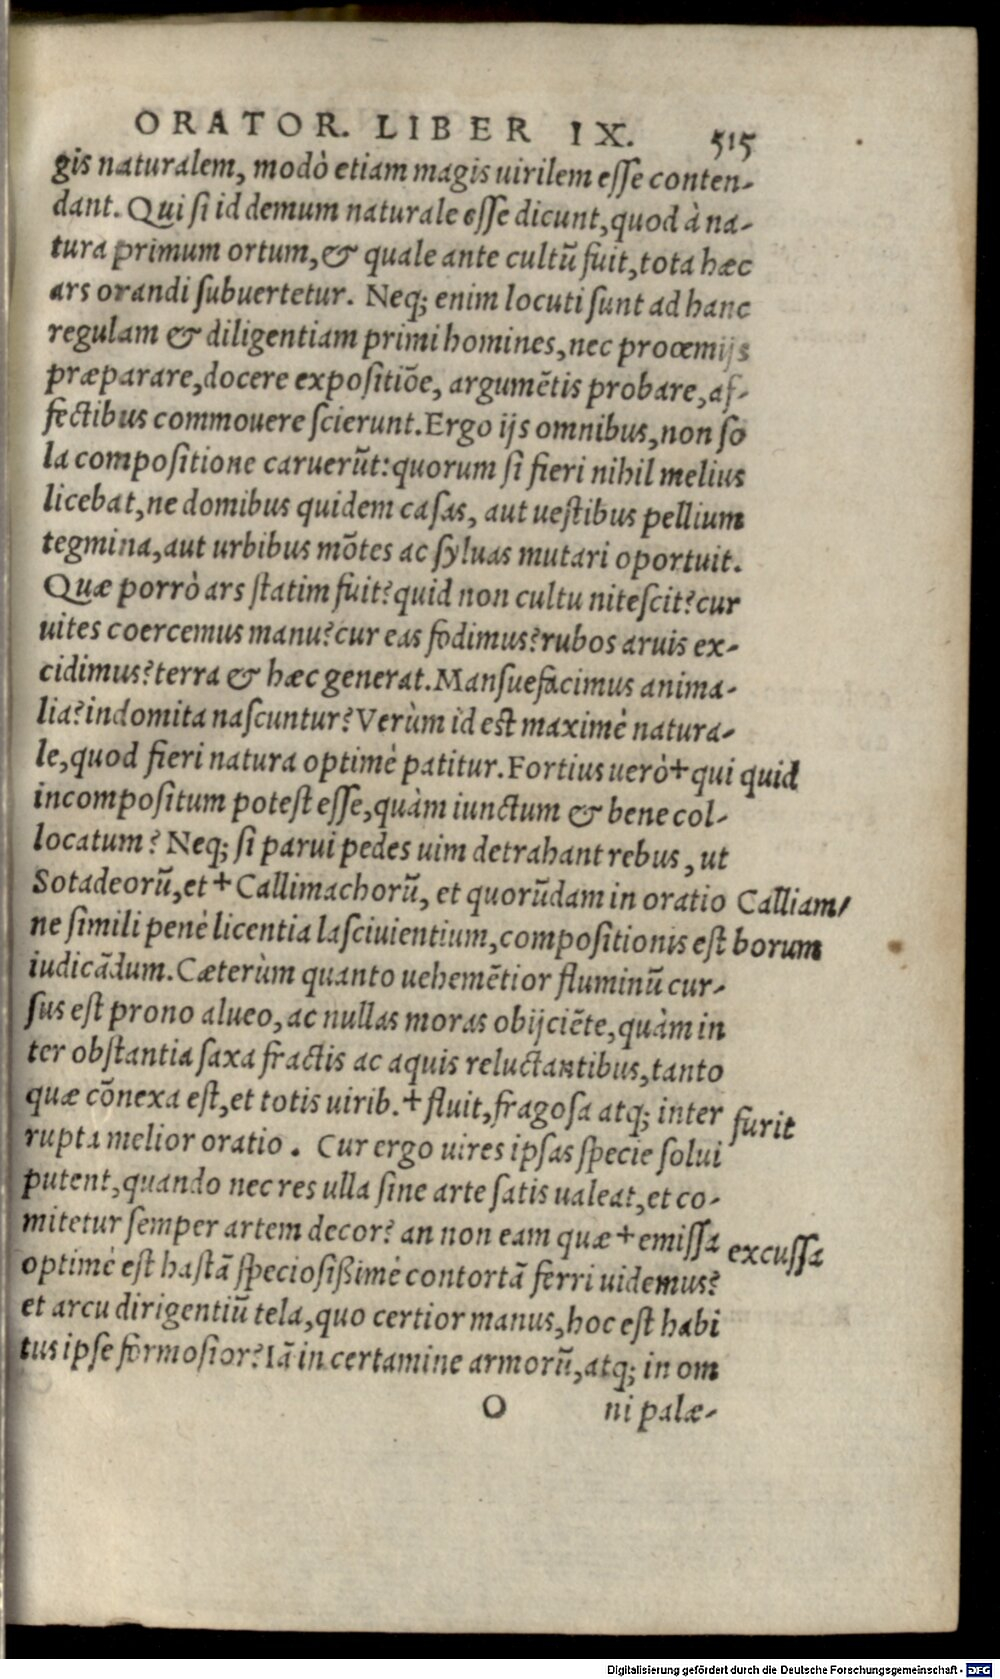 ORATOR. LIBER IX. 515
gis naturalem, modò etiam magis uirilem esse conten-
dant. Qui si id demum naturale esse dicunt, quod à na-
tura primum ortum, & quale ante cultũ fuit, tota hæc
ars orandi subuertetur. Neq; enim locuti sunt ad hanc
regulam & diligentiam primi homines, nec procemijs
præparare, docere expositiõe, argumẽtis probare, af-
fectibus commouere scierunt. Ergo ijs omnibus, non so
la compositione caruerũt: quorum si fieri nihil melius
licebat, ne domibus quidem casas, aut uestibus pellium
tegmina, aut urbibus mõtes ac syluas mutari oportuit.
Quæ porrò ars statim fuit? quid non cultu nitescit? cur
uites coercemus manu? cur eas fodimus? rubos aruis ex-
cidimus? terra & hæc generat. Mansuefacimus anima-
lia? indomita nascuntur? Verùm id est maximè natura-
le, quod fieri natura optimè patitur. Fortius uerò + qui quid
incompositum potest esse, quàm iunctum & bene col-
locatum? Neq; si parui pedes uim detrahant rebus, ut
Sotadeorũ, et + Callimachorũ, et quorũdam in oratio Calliam/
ne simili penè licentia lasciuientium, compositionis est borum
iudicãdum. Cæterùm quanto uehemẽtior fluminũ cur-
sus est prono alueo, ac nullas moras obijciẽte, quàm in
ter obstantia saxa fractis ac aquis reluctantibus, tanto
quæ cõnexa est, et totis uirib. + fluit, fragosa atq; inter furit
rupta melior oratio. Cur ergo uires ipsas specie solui
putent, quando nec res ulla sine arte satis ualeat, et co-
mitetur semper artem decor? an non eam quæ + emissa excussa
optimè est hastã speciosißimè contortã ferri uidemus?
et arcu dirigentiũ tela, quo certior manus, hoc est habi
tus ipse formosior? Iã in certamine armorũ, atq; in om
O ni palæ-
Digitalisierung gefördert durch die Deutsche Forschungsgemeinschaft - DFG